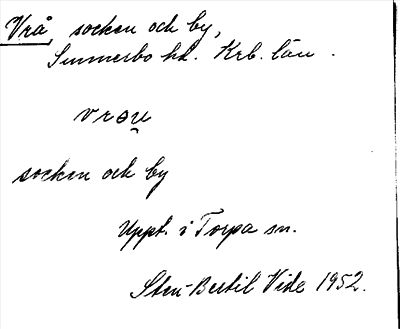 Vrå, socken och by,
Sunnerbo hd. Krb. län.
vrəu̯
socken och by
Uppt. i Torpa sn.
Sten-Bertil Vide 1952.